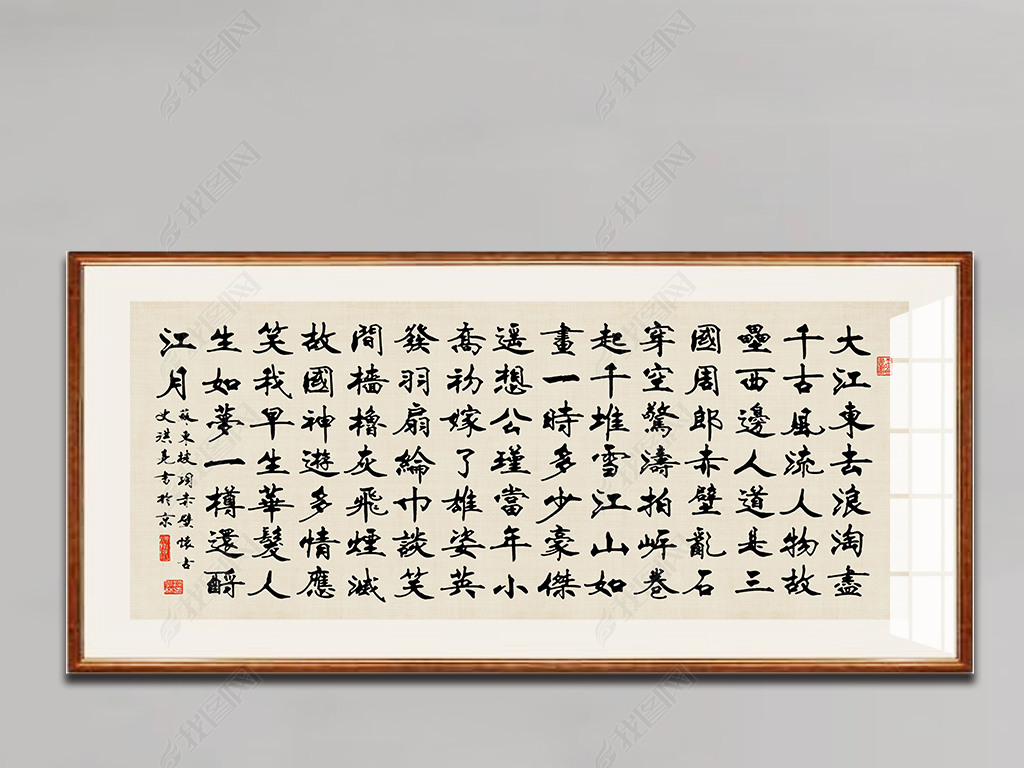 大江東去浪淘盡
千古風流人物故
壘西邊人道是三
國周郎赤壁亂石
穿空驚濤拍岍卷
起千堆雪江山如
畫一時多少豪傑
遥想公瑾當年小
喬初嫁了雄姿英
發羽扇綸巾談笑
間檣櫓灰飛煙滅
故國神遊多情應
笑我早生華髮人
生如夢一樽還酹
江月
蘇東坡詞赤壁懷古
史洪亮書於京
我图网